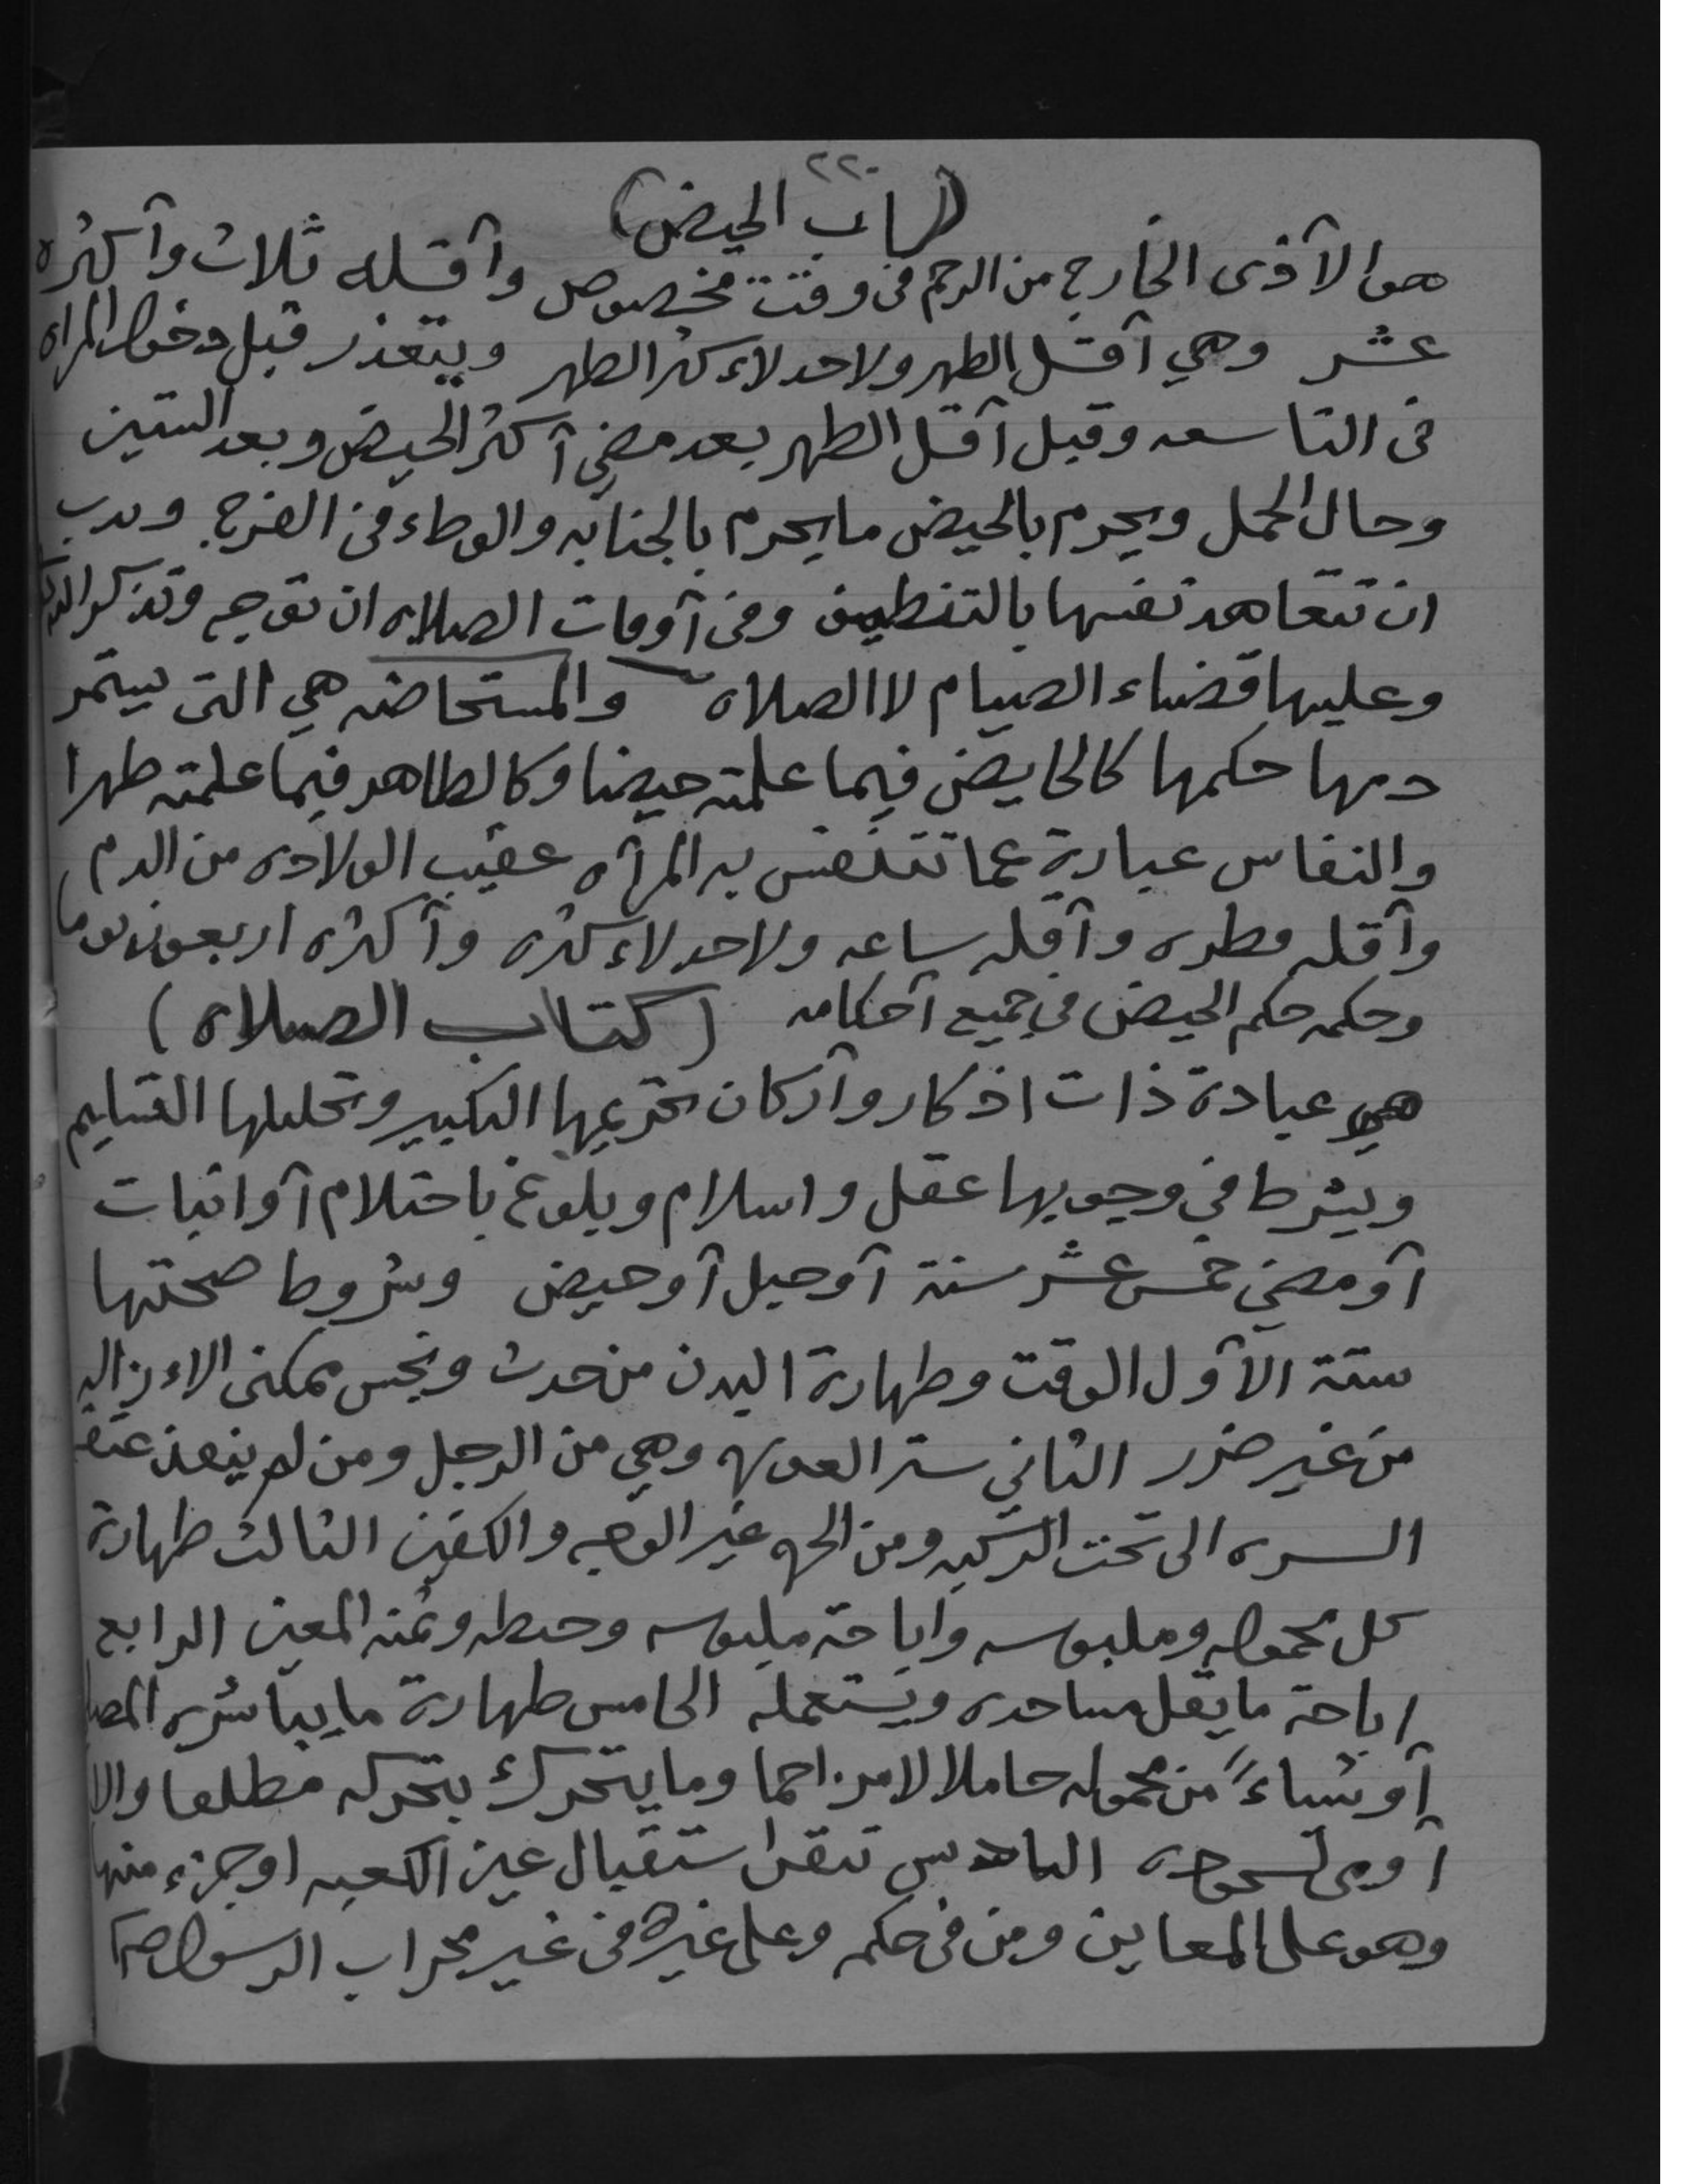 ٢٢٠
(باب الحيض)
هوا لآذى الخارج من الرحم فى وقت مخصوص وآقله ثلاث وآكثره
عشر وهي آقل الطهر ولا حد لاءكثر الطهر ويتعذر قبل دخول المراه
فى التاسعه وقبل آقل الطهر بعد مضي آكثر الحيض وبعد الستين
وحال الحمل ويحرم بالحيض ما يحرم بالجنابه والوطاء فى الفرج وندب
ان تتعاهد نفسها بالتنظيف وفى آوقات الصلاه ان توجه وتذكر الله
وعليها قضاء الصيام لا الصلاه والمستحاضه هي التى يستمر
دمها حكمها كالحايض فيما علمته حيضا وكالطاهر فيما علمته طهرا
والنفاس عبارة عما تتنفس به المرآه عقيب الولاده من الدم
وآقله قطره وآقله ساعه ولا حد لاءكثره وآكثره اربعون يوما
وحكمه حكم الحيض في جميع آحكامه (كتاب الصلاه)
هي عبادة ذات اذكار وآركان تحريمها التكبير وتحليلها التسليم
ويشرط في وجوبها عقل واسلام وبلوغ باحتلام آوانبات
آو مضي خمس عشر سنة آوحبل آوحيض وشروط صحتها
ستة الآول الوقت وطهارة البدن من حدث ونجس ممكنى الاءزاله
من غير ضرر الثاني ستر العوره وهي من الرجل ومن لم ينفذ عتقه
السره الى تحت الركبه ومن الحره غير الوجه والكفين الثالث طهارة
كل محموله وملبوسه واباحة ملبوسه وخيطه وثمنه المعين الرابع
اباحة ما يقل مساجده ويستعمله الخامس طهارة ما يباشره المصلي
آو شياءً من محموله حاملا لا مزاحما وما يتحرك بتحركه مطلقا والا
آومى لسجوده السادس تيقن استقبال عين الكعبه اوجزء منها
وهو على المعاين ومن فى حكمه وعلى غيره فى غير محراب الرسول ص